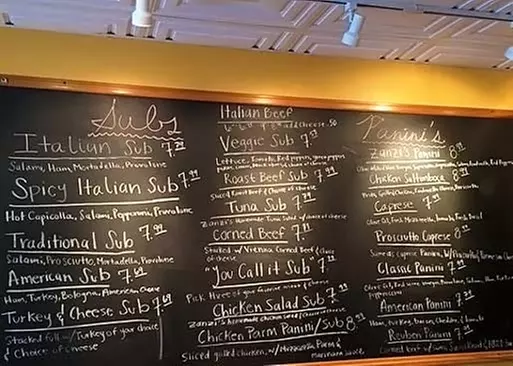 Subs
Italian Sub 7.29
Salami, Ham, Mortadella, Provolone
Spicy Italian Sub 7.99
Hot Capicolla, Salami, Pepperoni, Provolone
Traditional Sub 7.99
Salami, Prosciutto, Mortadella, Provolone
American Sub 7.69
Ham, Turkey, Bologna, American Cheese
Turkey & Cheese Sub 7.69
Stacked full w/ Turkey of your choice
& Choice of Cheese
Italian Beef
add cheese .50
Veggie Sub
Lettuce, Tomato, Red peppers, green peppers
Roast Beef Sub 7.99
Sliced Roast Beef & Choice of cheese
Tuna Sub
Zanzi's Homemade Tuna Salad w/ choice of cheese
Corned Beef
Stacked w/ Vienna Corned Beef & choice
of cheese
"You Call it Sub"
Pick three of your favorite meats & cheese
Chicken Salad Sub
Zanzi's homemade chicken salad
Chicken Parm Panini/Sub 8.99
Sliced grilled chicken, w/ Mozzarella, Parm &
Marinara sauce
Panini's
Zanzi's Panini
Chicken Saltimboca
Caprese
Olive Oil, Fresh Mozzarella, Tomato, Fresh Basil
Prosciutto Caprese
Same as caprese Panini, w/ Prosciutto & Parmesan Cheese
Classic Panini
American Panini
Ham, turkey, bacon, cheddar, & tomato
Reuben Panini
Corned beef w/ Swiss, Sauerkraut &